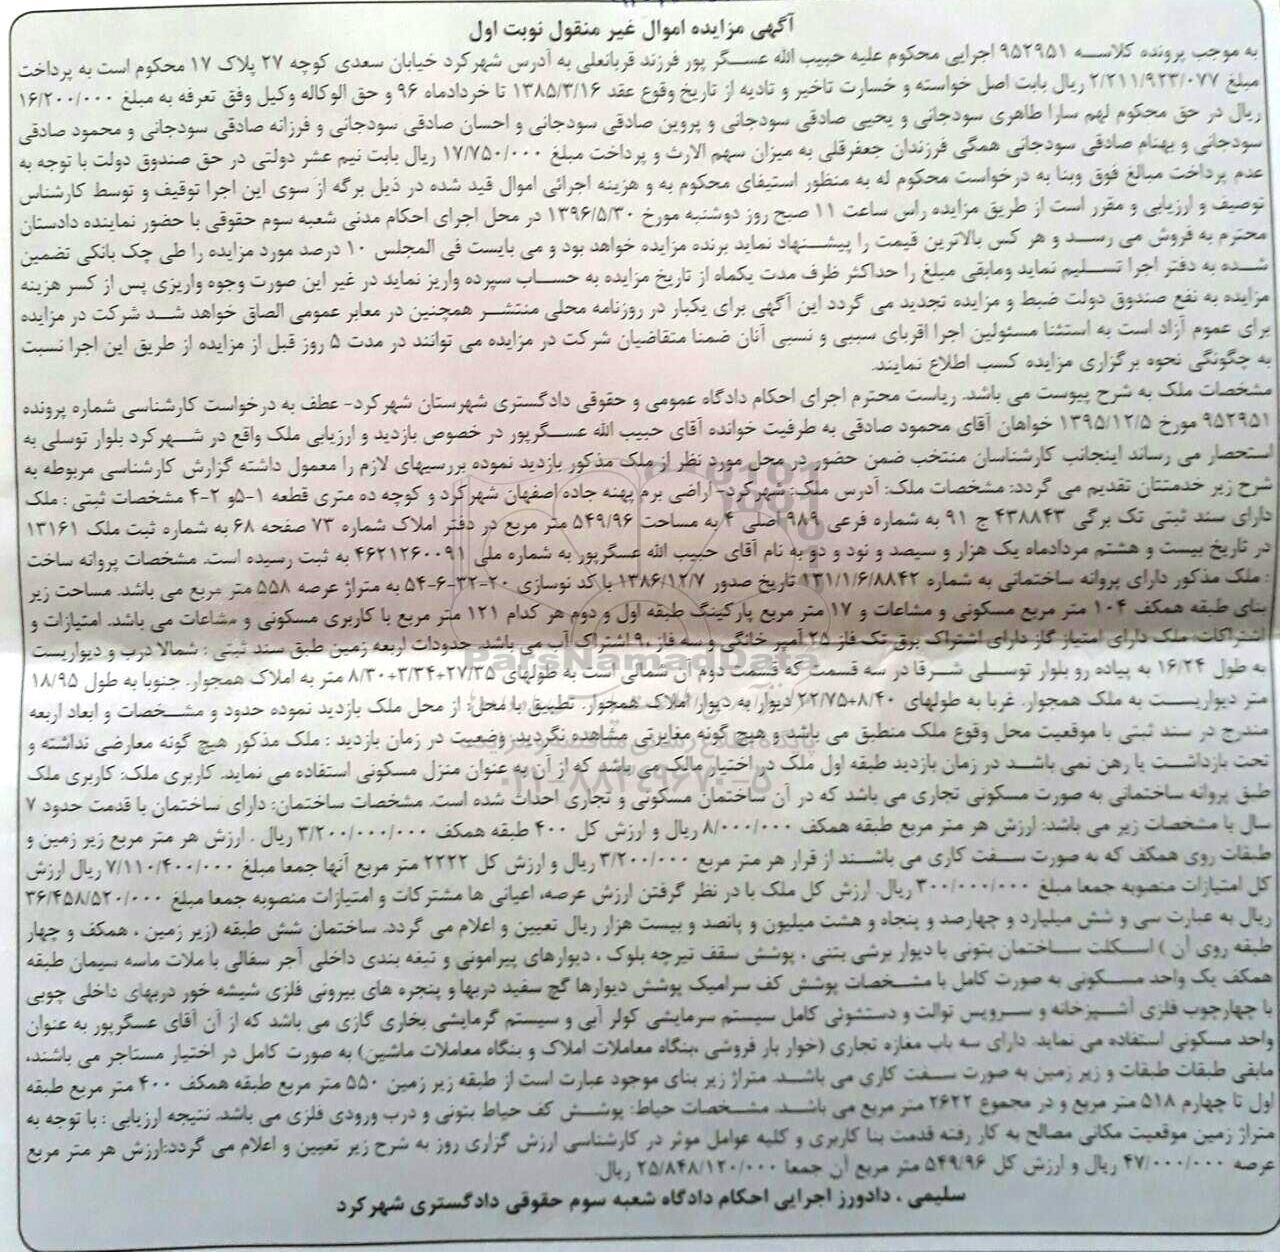 آگهی مزایده اموال غیر منقول نوبت اول
به موجب پرونده کلاسه ۹۵۲۹۵۱ اجرایی محکوم علیه حبیب الله عسگر پور فرزند قربانعلی به آدرس شهرکرد خیابان سعدی کوچه ۲۷ پلاک ۱۷ محکوم است به پرداخت
مبلغ ۲/۲۱۱/۹۲۳/۰۷۷ ریال بابت اصل خواسته و خسارت تاخیر و تادیه از تاریخ وقوع عقد ۱۳۸۵/۳/۱۶ تا خردادماه ۹۶ و حق الوکاله وکیل وفق تعرفه به مبلغ ۱۶/۲۰۰/۰۰۰
ریال در حق محکوم لهم سارا طاهری سودجانی و یحیی صادقی سودجانی و پروین صادقی سودجانی و احسان صادقی سودجانی و فرزانه صادقی سودجانی و محمود صادقی
سودجانی و بهنام صادقی سودجانی همگی فرزندان جعفرقلی به میزان سهم الارث و پرداخت مبلغ ۱۷/۷۵۰/۰۰۰ ریال بابت نیم عشر دولتی در حق صندوق دولت با توجه به
عدم پرداخت مبالغ فوق وبنا به درخواست محکوم له به منظور استیفای محکوم به و هزینه اجرائی اموال قید شده در ذیل برگه از سوی این اجرا توقیف و توسط کارشناس
توصیف و ارزیابی و مقرر است از طریق مزایده راس ساعت ۱۱ صبح روز دوشنبه مورخ ۱۳۹۶/۵/۳۰ در محل اجرای احکام مدنی شعبه سوم حقوقی با حضور نماینده دادستان
محترم به فروش می رسد و هر کس بالاترین قیمت را پیشنهاد نماید برنده مزایده خواهد بود و می بایست فی المجلس ۱۰ درصد مورد مزایده را طی چک بانکی تضمین
شده به دفتر اجرا تسلیم نماید ومابقی مبلغ را حداکثر ظرف مدت یکماه از تاریخ مزایده به حساب سپرده واریز نماید در غیر این صورت وجوه واریزی پس از کسر هزینه
مزایده به نفع صندوق دولت ضبط و مزایده تجدید می گردد این آگهی برای یکبار در روزنامه محلی منتشر همچنین در معابر عمومی الصاق خواهد شد شرکت در مزایده
برای عموم آزاد است به استثنا مسئولین اجرا اقربای سببی و نسبی آنان ضمنا متقاضیان شرکت در مزایده می توانند در مدت ۵ روز قبل از مزایده از طریق این اجرا نسبت
به چگونگی نحوه برگزاری مزایده کسب اطلاع نمایند.
مشخصات ملک به شرح پیوست می باشد. ریاست محترم اجرای احکام دادگاه عمومی و حقوقی دادگستری شهرستان شهرکرد- عطف به درخواست کارشناسی شماره پرونده
۹۵۲۹۵۱ مورخ ۱۳۹۵/۱۲/۵ خواهان آقای محمود صادقی به طرفیت خوانده آقای حبیب الله عسگرپور در خصوص بازدید و ارزیابی ملک واقع در شهرکرد بلوار توسلی به
استحضار می رساند اینجانب کارشناسان منتخب ضمن حضور در محل مورد نظر از ملک مذکور بازدید نموده بررسیهای لازم را معمول داشته گزارش کارشناسی مربوطه به
شرح زیر خدمتتان تقدیم می گردد: مشخصات ملک: آدرس ملک: شهرکرد- اراضی برم پهنه جاده اصفهان شهرکرد و کوچه ده متری قطعه ۱-۵و ۲-۴ مشخصات ثبتی : ملک
دارای سند ثبتی تک برگی ۴۳۸۸۴۳ ج ۹۱ به شماره فرعی ۹۸۹ اصلی ۴ به مساحت ۵۴۹/۹۶ متر مربع در دفتر املاک شماره ۷۳ صفحه ۶۸ به شماره ثبت ملک ۱۳۱۶۱
در تاریخ بیست و هشتم مردادماه یک هزار و سیصد و نود و دو به نام آقای حبیب الله عسگرپور به شماره ملی ۴۶۲۱۲۶۰۰۹۱ به ثبت رسیده است. مشخصات پروانه ساخت
: ملک مذکور دارای پروانه ساختمانی به شماره ۱۳۱/۱/۶/۸۸۴۲ تاریخ صدور ۱۳۸۶/۱۲/۷ با کد نوسازی ۲۰-۳۲-۶-۵۴ به متراژ عرصه ۵۵۸ متر مربع می باشد. مساحت زیر
بنای طبقه همکف ۱۰۴ متر مربع مسکونی و مشاعات و ۱۷ متر مربع پارکینگ طبقه اول و دوم هر کدام ۱۲۱ متر مربع با کاربری مسکونی و مشاعات می باشد. امتیازات و
اشتراکات: ملک دارای امتیاز گاز دارای اشتراک برق تک فاز ۲۵ آمپر خانگی و سه فاز ۹۰ اشتراک آب می باشد. حدودات اربعه زمین طبق سند ثبتی : شمالا درب و دیواریست
به طول ۱۶/۲۴ به پیاده رو بلوار توسلی شرقا در سه قسمت که قسمت دوم آن شمالی است به طولهای ۲۷/۳۵+۳/۳۴+۸/۳۰ متر به املاک همجوار. جنوبا به طول ۱۸/۹۵
متر دیواریست به ملک همجوار. غربا به طولهای ۸/۴۰+۲۲/۷۵ دیوار به دیوار املاک همجوار. تطبیق با محل: از محل ملک بازدید نموده حدود و مشخصات و ابعاد اربعه
مندرج در سند ثبتی با موقعیت محل وقوع ملک منطبق می باشد و هیچ گونه مغایرتی مشاهده نگردید. وضعیت در زمان بازدید : ملک مذکور هیچ گونه معارضی نداشته و
تحت بازداشت یا رهن نمی باشد در زمان بازدید طبقه اول ملک در اختیار مالک می باشد که از آن به عنوان منزل مسکونی استفاده می نماید. کاربری ملک: کاربری ملک
طبق پروانه ساختمانی به صورت مسکونی تجاری می باشد که در آن ساختمان مسکونی و تجاری احداث شده است. مشخصات ساختمان: دارای ساختمان با قدمت حدود ۷
سال با مشخصات زیر می باشد: ارزش هر متر مربع طبقه همکف ۸/۰۰۰/۰۰۰ ریال و ارزش کل ۴۰۰ طبقه همکف ۳/۲۰۰/۰۰۰/۰۰۰ ریال . ارزش هر متر مربع زیر زمین و
طبقات روی همکف که به صورت سفت کاری می باشند از قرار هر متر مربع ۳/۲۰۰/۰۰۰ ریال و ارزش کل ۲۲۲۲ متر مربع آنها جمعا مبلغ ۷/۱۱۰/۴۰۰/۰۰۰ ریال ارزش
کل امتیازات منصوبه جمعا مبلغ ۳۰۰/۰۰۰/۰۰۰ ریال. ارزش کل ملک با در نظر گرفتن ارزش عرصه، اعیانی ها مشترکات و امتیازات منصوبه جمعا مبلغ ۳۶/۴۵۸/۵۲۰/۰۰۰
ریال به عبارت سی و شش میلیارد و چهارصد و پنجاه و هشت میلیون و پانصد و بیست هزار ریال تعیین و اعلام می گردد. ساختمان شش طبقه (زیر زمین ، همکف و چهار
طبقه روی آن ) اسکلت ساختمان بتونی با دیوار برشی بتنی ، پوشش سقف تیرچه بلوک ، دیوارهای پیرامونی و تیغه بندی داخلی آجر سفالی با ملات ماسه سیمان طبقه
همکف یک واحد مسکونی به صورت کامل با مشخصات پوشش کف سرامیک پوشش دیوارها گچ سفید دربها و پنجره های بیرونی فلزی شیشه خور دربهای داخلی چوبی
با چهارچوب فلزی آشپزخانه و سرویس توالت و دستشوئی کامل سیستم سرمایشی کولر آبی و سیستم گرمایشی بخاری گازی می باشد که از آن آقای عسگرپور به عنوان
واحد مسکونی استفاده می نماید. دارای سه باب مغازه تجاری (خوار بار فروشی ،بنگاه معاملات املاک و بنگاه معاملات ماشین) به صورت کامل در اختیار مستاجر می باشند،
مابقی طبقات طبقات و زیر زمین به صورت سفت کاری می باشد. متراژ زیر بنای موجود عبارت است از طبقه زیر زمین ۵۵۰ متر مربع طبقه همکف ۴۰۰ متر مربع طبقه
اول تا چهارم ۵۱۸ متر مربع و در مجموع ۲۶۲۲ متر مربع می باشد. مشخصات حیاط: پوشش کف حیاط بتونی و درب ورودی فلزی می باشد. نتیجه ارزیابی : با توجه به
متراژ زمین موقعیت مکانی مصالح به کار رفته قدمت بنا کاربری و کلیه عوامل موثر در کارشناسی ارزش گزاری روز به شرح زیر تعیین و اعلام می گردد:ارزش هر متر مربع
عرصه ۴۷/۰۰۰/۰۰۰ ریال و ارزش کل ۵۴۹/۹۶ متر مربع آن جمعا ۲۵/۸۴۸/۱۲۰/۰۰۰ ریال.
سلیمی ، دادورز اجرایی احکام دادگاه شعبه سوم حقوقی دادگستری شهرکرد
ParsNamadData
۰۲۱-۸۸۳۴۹۶۷۰-۵